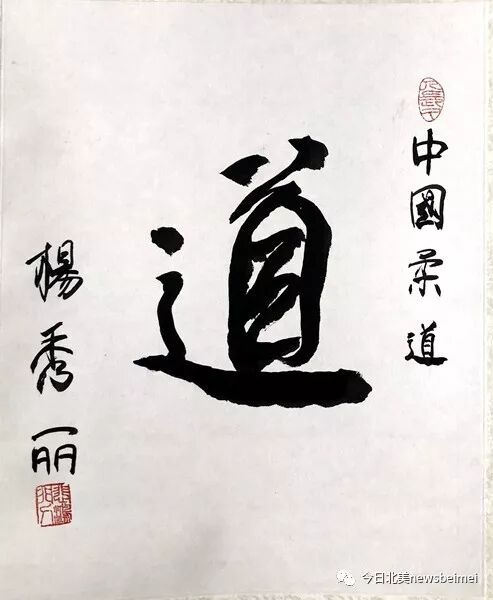 中國柔道
道
楊秀丽
今日北美newsbeimei